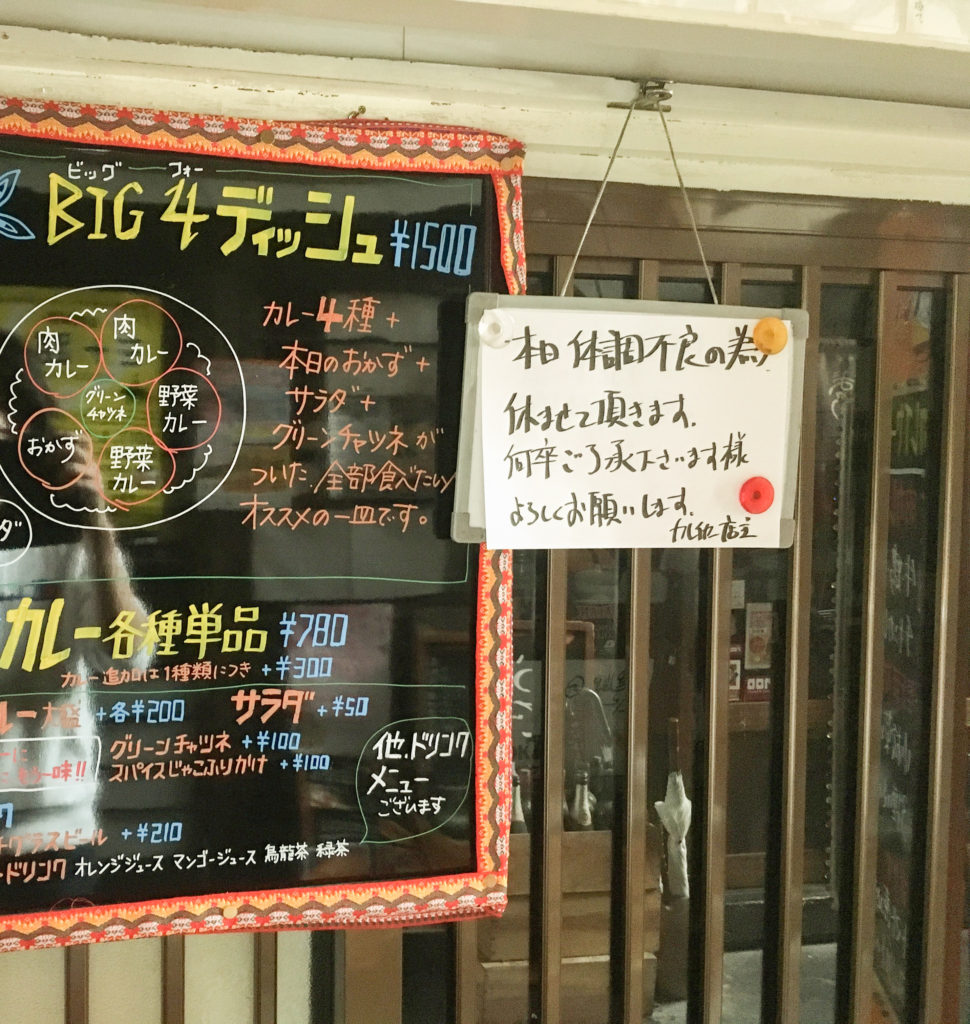 ビッグ フォー
BIG 4 ディッシュ ¥1500
肉
カレー
肉
カレー
グリーン
チャツネ
野菜
カレー
おかず
野菜
カレー
ダ
カレー4種 +
本日のおかず +
サラダ +
グリーンチャツネが
ついた、全部食べたい
オススメの一皿です。
カレー各種単品 ¥780
カレー追加は1種類につき +¥300
レー大盛 +各¥200
サラダ +¥50
グリーンチャツネ +¥100
スパイスじゃこふりかけ +¥100
もう一味!!
他、ドリンク
メニュー
ございます
グラスビール +¥210
ドリンク オレンジジュース マンゴージュース 烏龍茶 緑茶
本日 体調不良の為
休ませて頂きます。
何卒ご了承下さいます様
よろしくお願いします。
店主